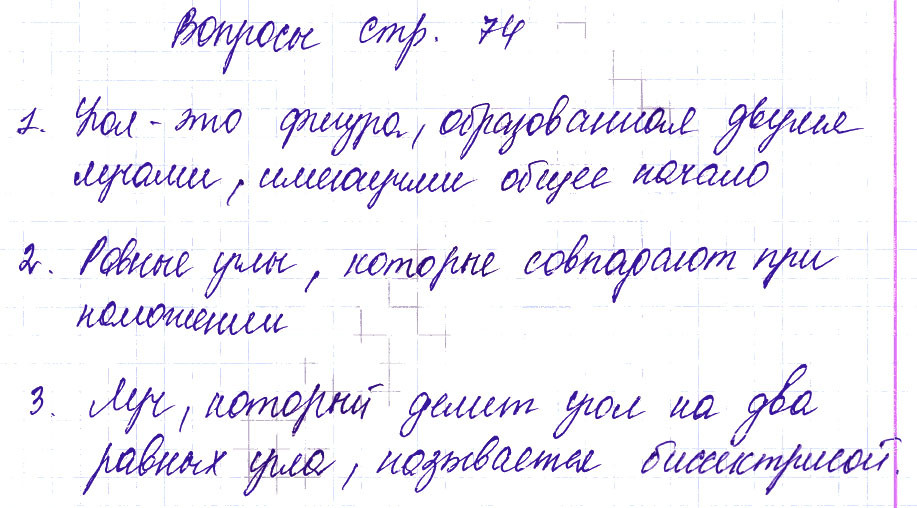 Вопросы стр. 74
1. Угол - это фигура, образованная двумя
лучами, имеющими общее начало
2. Равные углы, которые совпадают при
наложении
3. Луч, который делит угол на два
равных угла, называется биссектрисой.